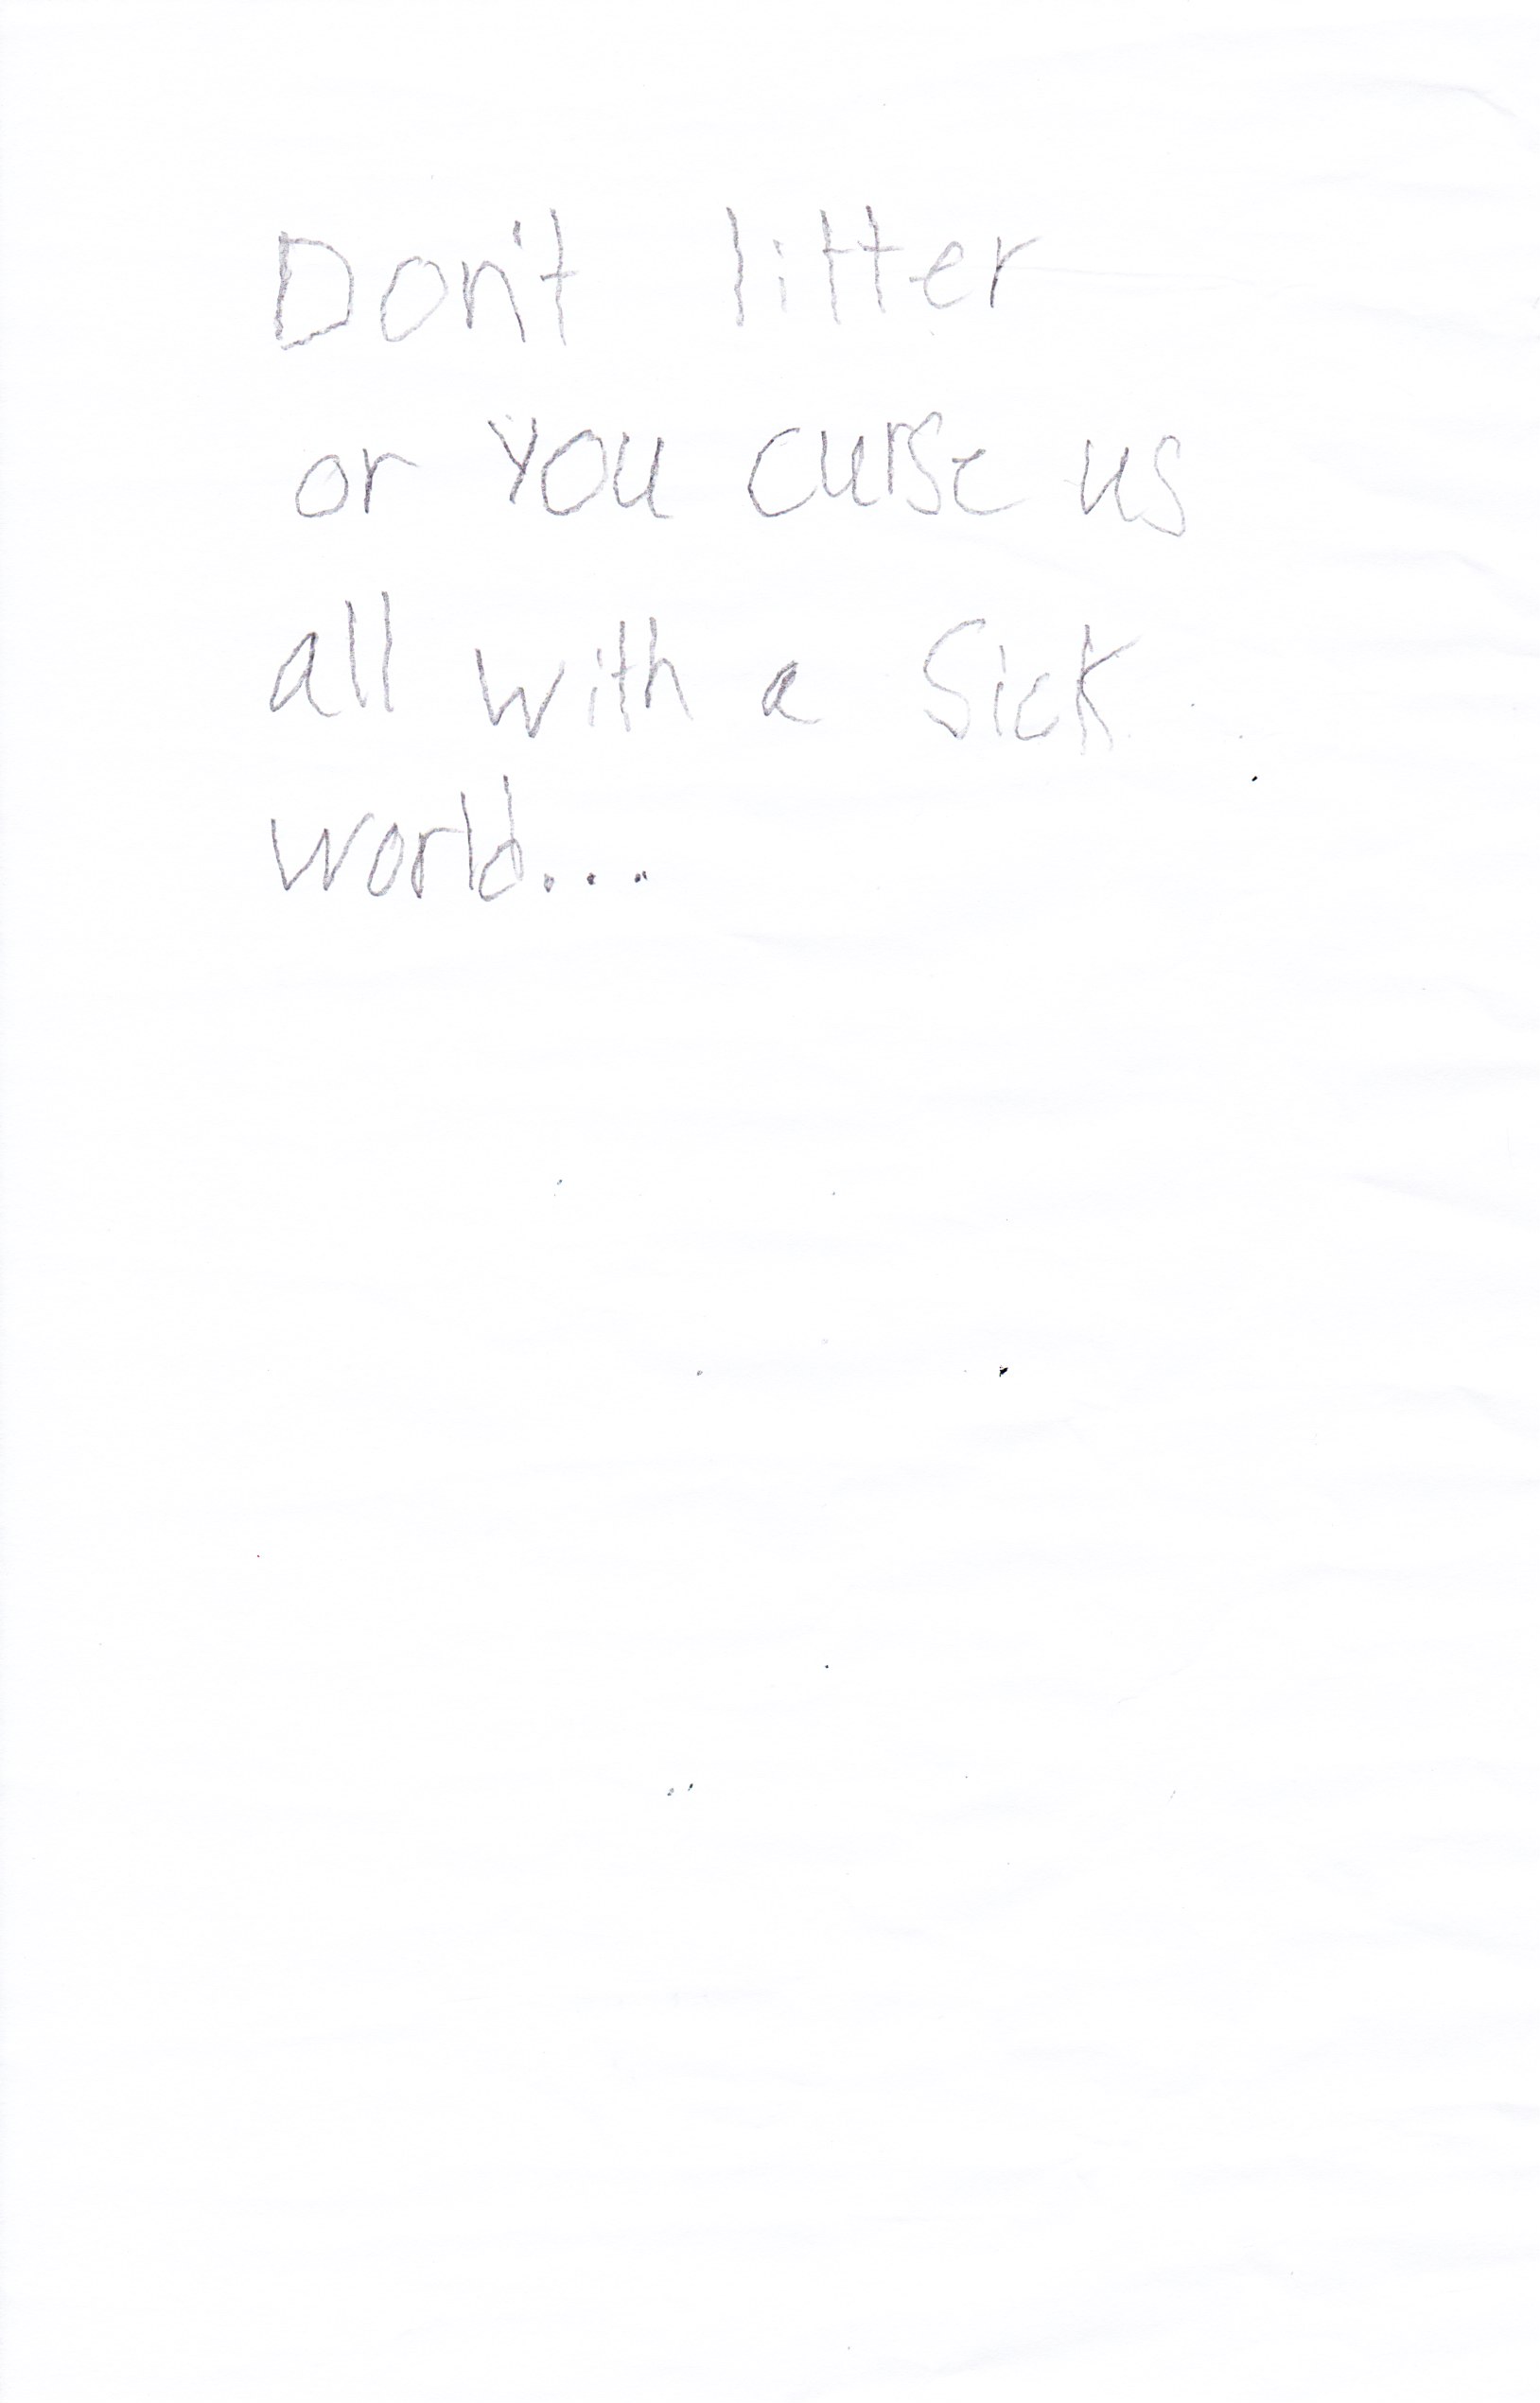 Don't litter
or you curse us
all with a Sick
world....